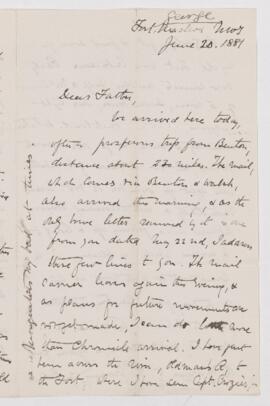 George
Fort Macleod NWT
June 20. 1881
Dear Father,
We arrived here today,
after a prosperous trip from Benton,
distance about 230 miles. The mail,
which comes via Benton &
also arrived this morning, & as the
only home letter received by it is one
from you dated May 22nd, I address
these few lines to you. The mail
carrier leaves again this evening, &
as plans for future movements are
not yet made, I can do little more
than Chronicle arrival. I have just
been across the river, Old Mans R, to
the Fort, where I have seen Capt. Crozier,
at times